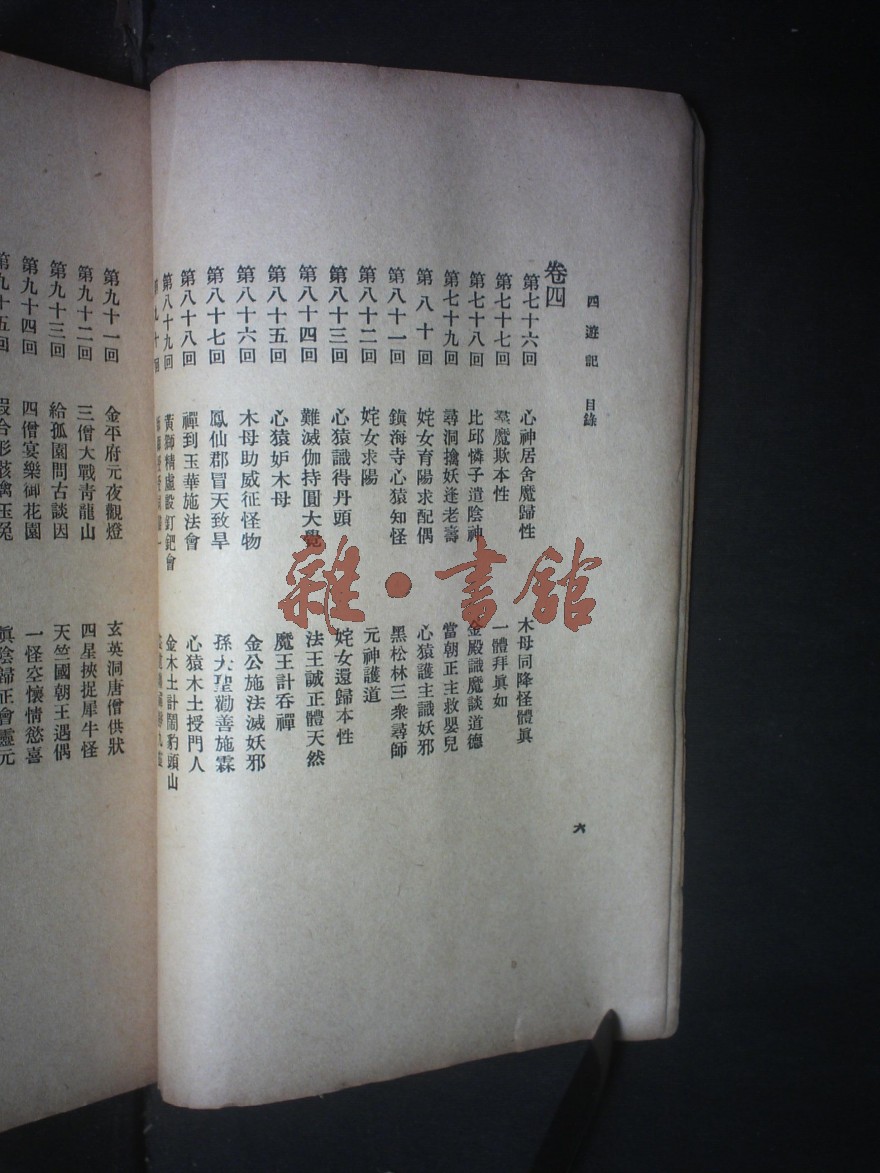 四遊記 目錄
六
卷四
第七十六回 心神居舍魔歸性 木母同降怪體眞
第七十七回 羣魔欺本性 一體拜眞如
第七十八回 比邱憐子遣陰神 金殿識魔談道德
第七十九回 尋洞擒妖逢老壽 當朝正主救嬰兒
第八十回 姹女育陽求配偶 心猿護主識妖邪
第八十一回 鎭海寺心猿知怪 黑松林三衆尋師
第八十二回 姹女求陽 元神護道
第八十三回 心猿識得丹頭 姹女還歸本性
第八十四回 難滅伽持圓大覺 法王誠正體天然
第八十五回 心猿妒木母 魔王計吞禪
第八十六回 木母助威征怪物 金公施法滅妖邪
第八十七回 鳳仙郡冒天致旱 孫大聖勸善施霖
第八十八回 禪到玉華施法會 心猿木土授門人
第八十九回 黃獅精虛設釘鈀會 金木土計鬧豹頭山
第九十回
第九十一回 金平府元夜觀燈 玄英洞唐僧供狀
第九十二回 三僧大戰靑龍山 四星挾捉犀牛怪
第九十三回 給孤園問古談因 天竺國朝王遇偶
第九十四回 四僧宴樂御花園 一怪空懷情慾喜
第九十五回 假合形骸擒玉兔 眞陰歸正會靈元
雜·書館